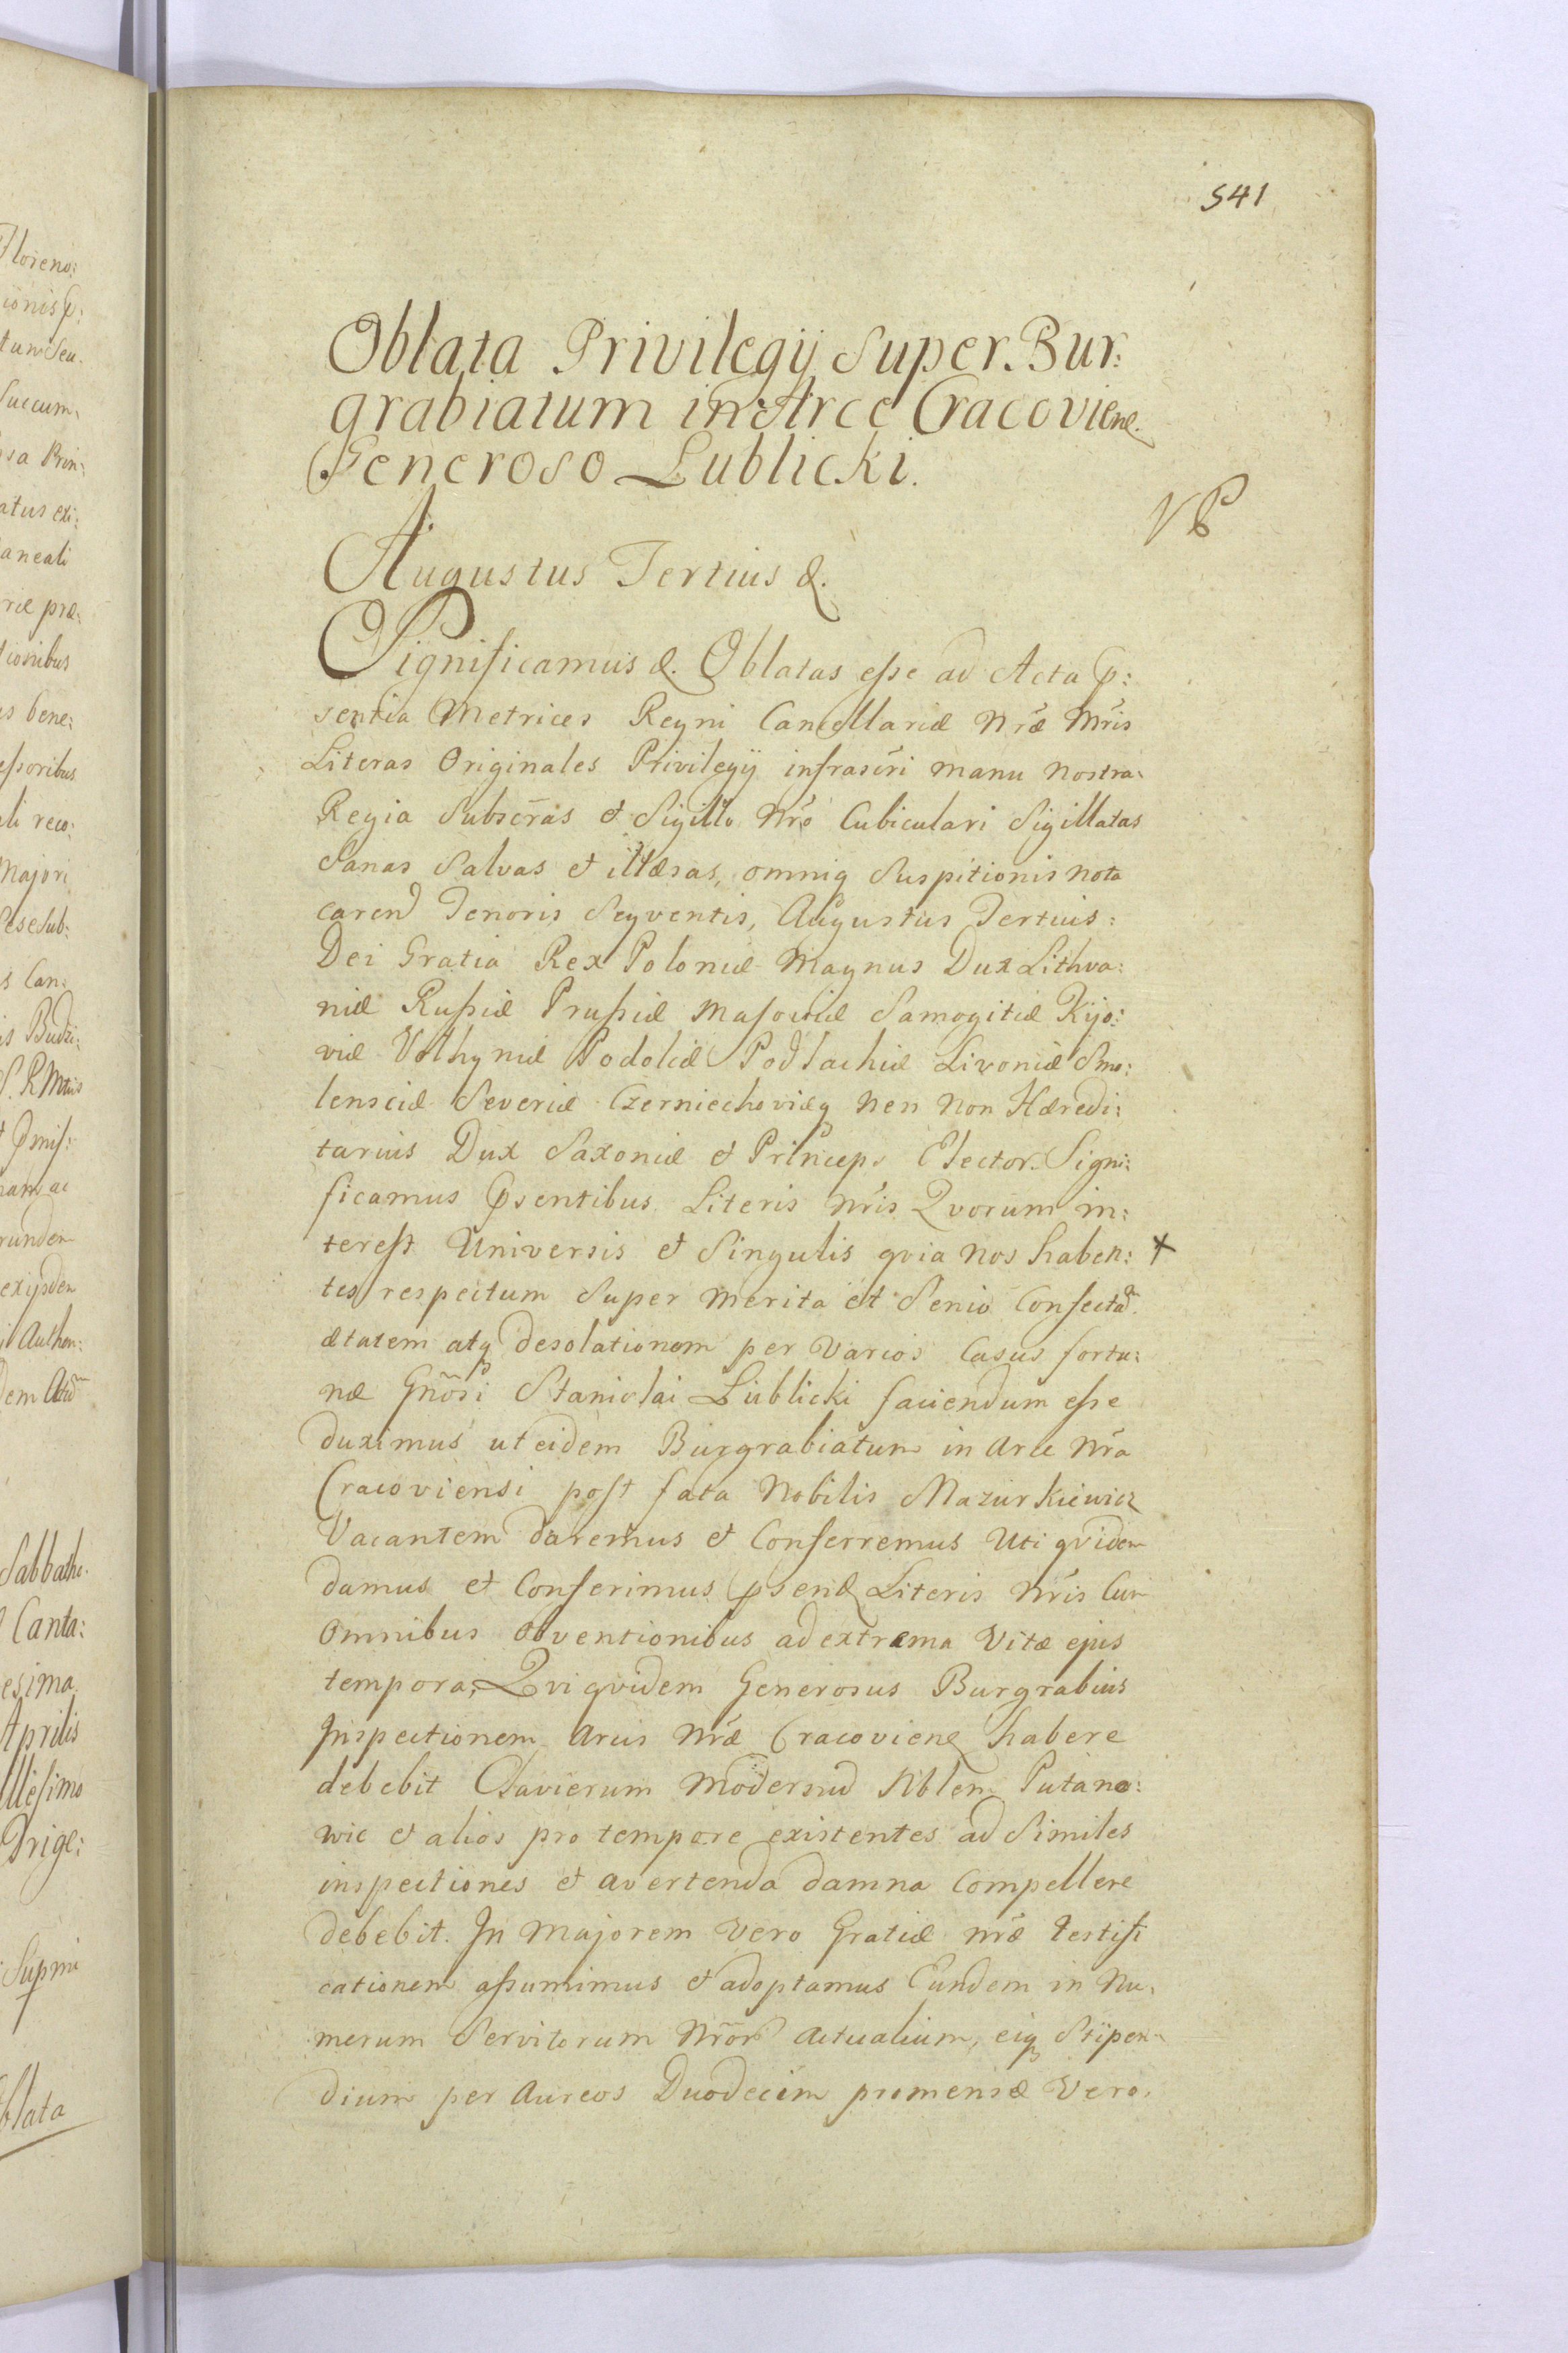 541
Oblata Privilegij Super Bur:
grabiatum in Arce Cracovien.
Generoso Lublicki.
Augustus Tertius &.
Significamus &. Oblatas esse ad Acta p:
sentia Metrices Regni Cancellariæ Nræ Mris
Literas Originales Privilegij infrascri manu nostra
Regia Subscras et Sigillo Nro Cubiculari Sigillatas
Sanas Salvas et illæsas, omniq Suspitionis nota
caren Tenoris Seqventis, Augustus Tertius:
Dei Gratia Rex Poloniæ Magnus Dux Lithva:
niæ Russiæ Prussiæ Masoviæ Samogitiæ Kijo:
viæ Volhyniæ Podoliæ Podlachiæ Livoniæ Smo:
lensciæ Severiæ Czerniechoviæq nen non Hæredi:
tarius Dux Saxoniæ et Princeps Elector. Signi:
ficamus psentibus Literis Nris Qvorum in:
terest Universis et Singulis qvia nos haben: x
tes respectum Super merita et Senio Confectã
ætatem atq desolationem per varios Casus fortu:
næ Gñosi Stanislai Lublicki faciendum esse
duximus ut eidem Burgrabiatum in Arce Nra
Cracoviensi post fata Nobilis Mazurkiewicz
Vacantem daremus et Conferremus Uti qvidem
damus et Conferimus psen Literis Nris Cum
Omnibus obventionibus ad extrema Vitæ ejus
tempora, Qvi qvidem Generosus Burgrabius
Inspectionem Arcis Nræ Cracovien habere
debebit Clavierum Modernũ Nblem Putano:
wic et alios pro tempore existentes ad Similes
inspectiones et avertenda damna Compellere
debebit. In Majorem vero Gratiæ nræ testifi
cationem assumimus et adoptamus Eundem in Nu:
merum Servitorum Nrõr Actualium, eiq Stipen:
dium per Aureos Duodecim pro mense Vero.